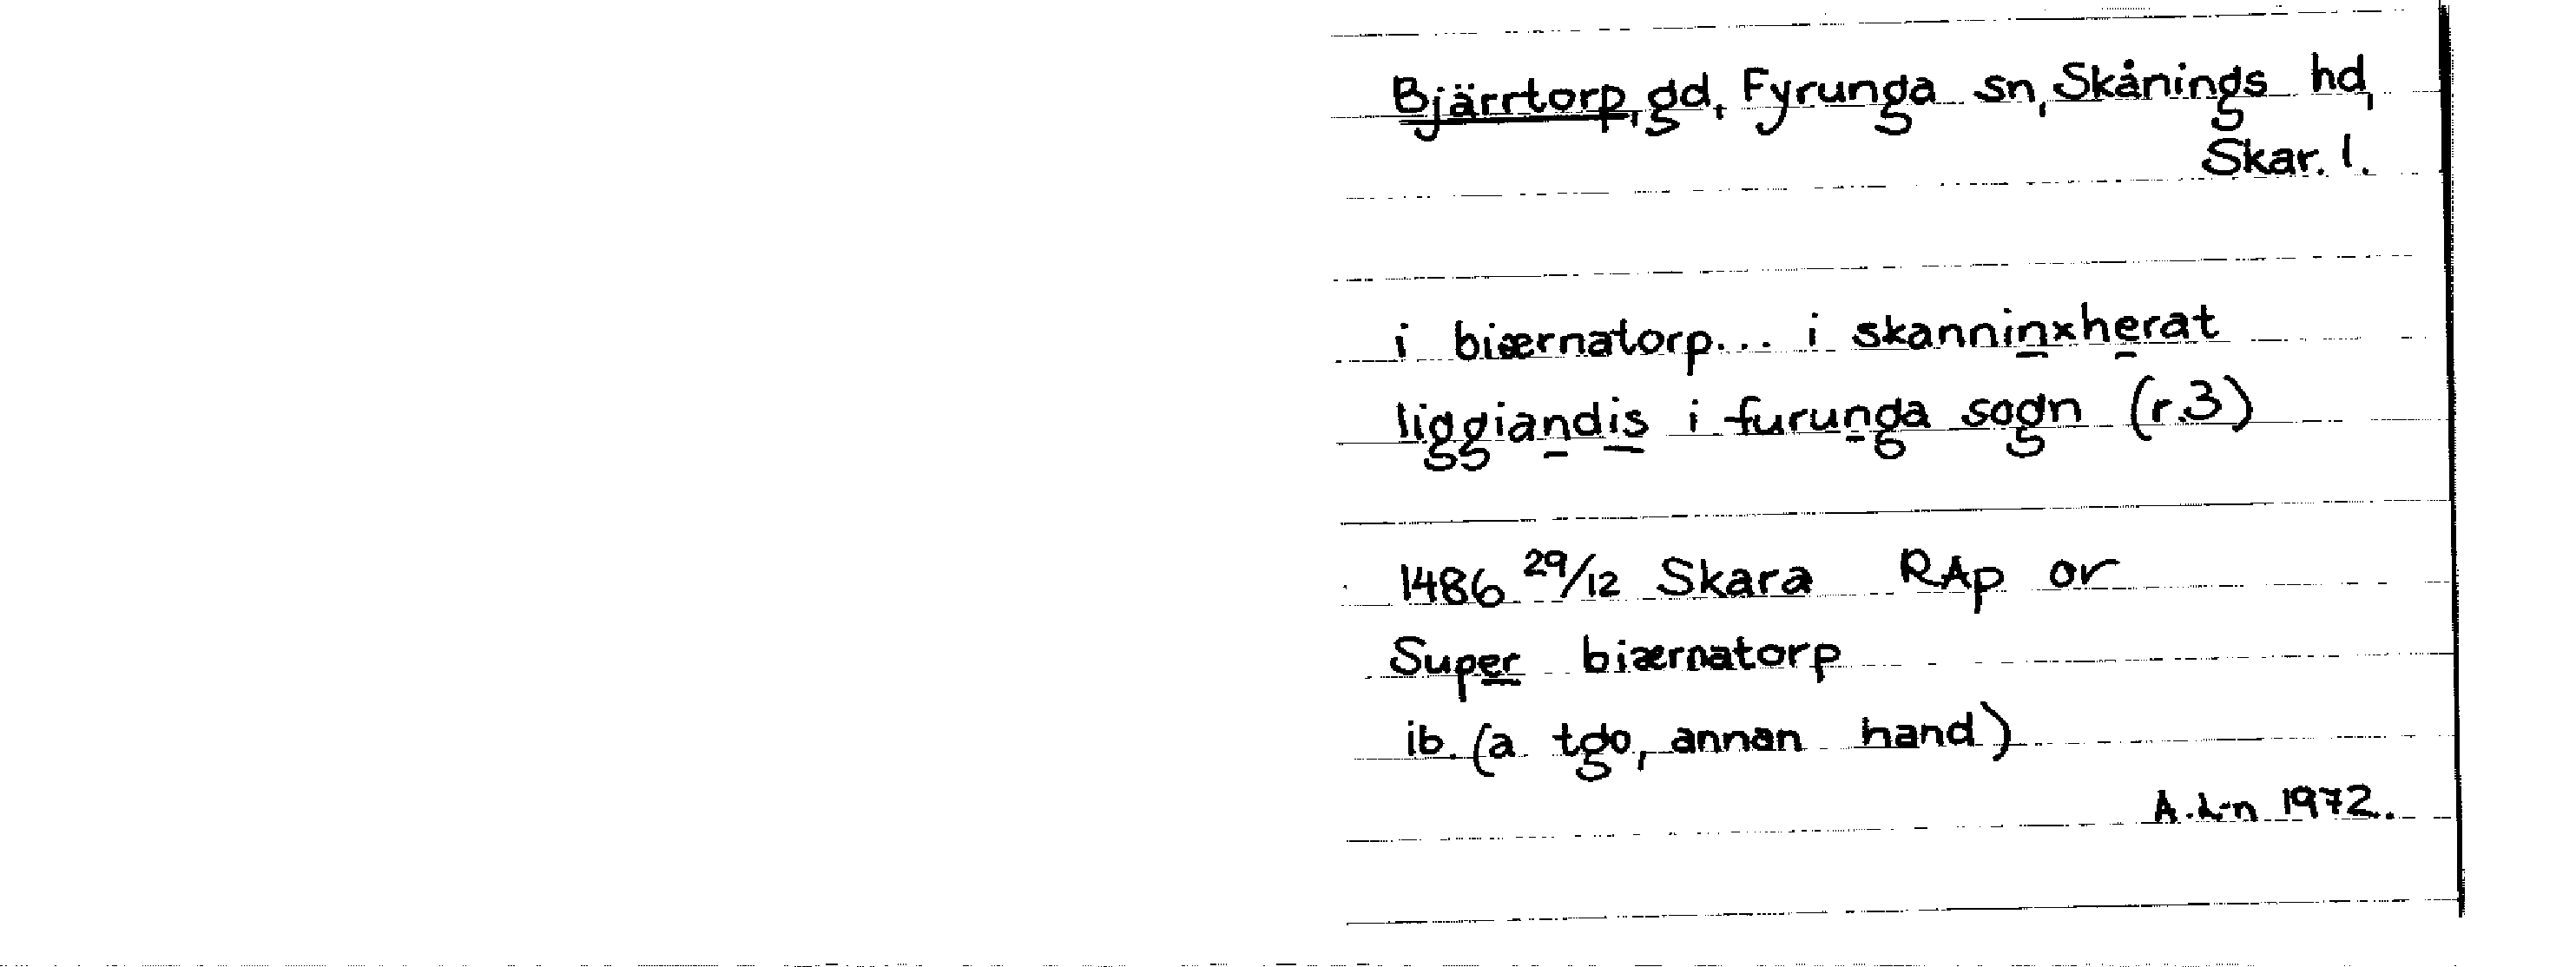 Bjärrtorp, gd, Fyrunga sn, Skånings hd,
Skar. l.
i biærnatorp... i skanninxherat
liggiandis i furunga sogn (r.3)
1486 29/12 Skara RAp or
Super biærnatorp
ib. (a tgo, annan hand)
A.L-n 1972.